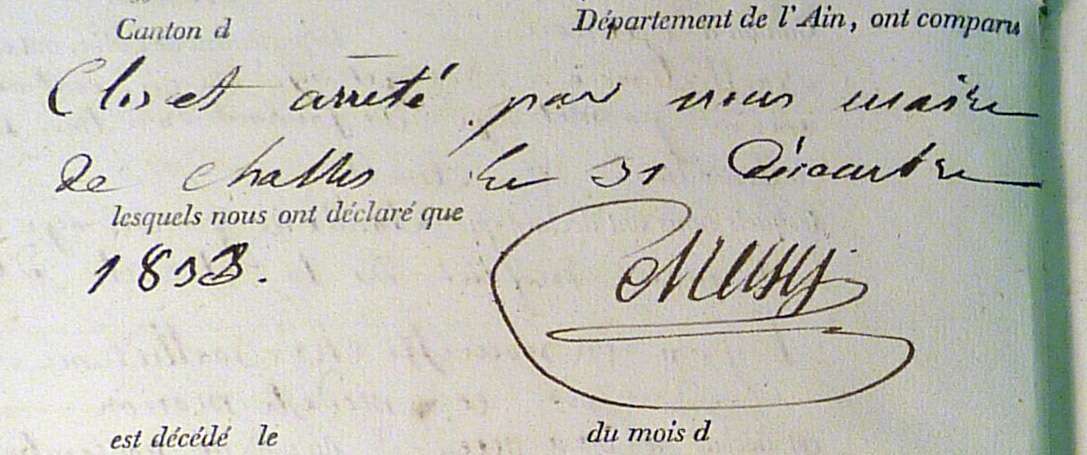 Canton d Département de l'Ain, ont comparu
Clos et arrêté par nous maire
de challes le 31 Décembre
lesquels nous ont déclaré que
1833.
est décédé le du mois d